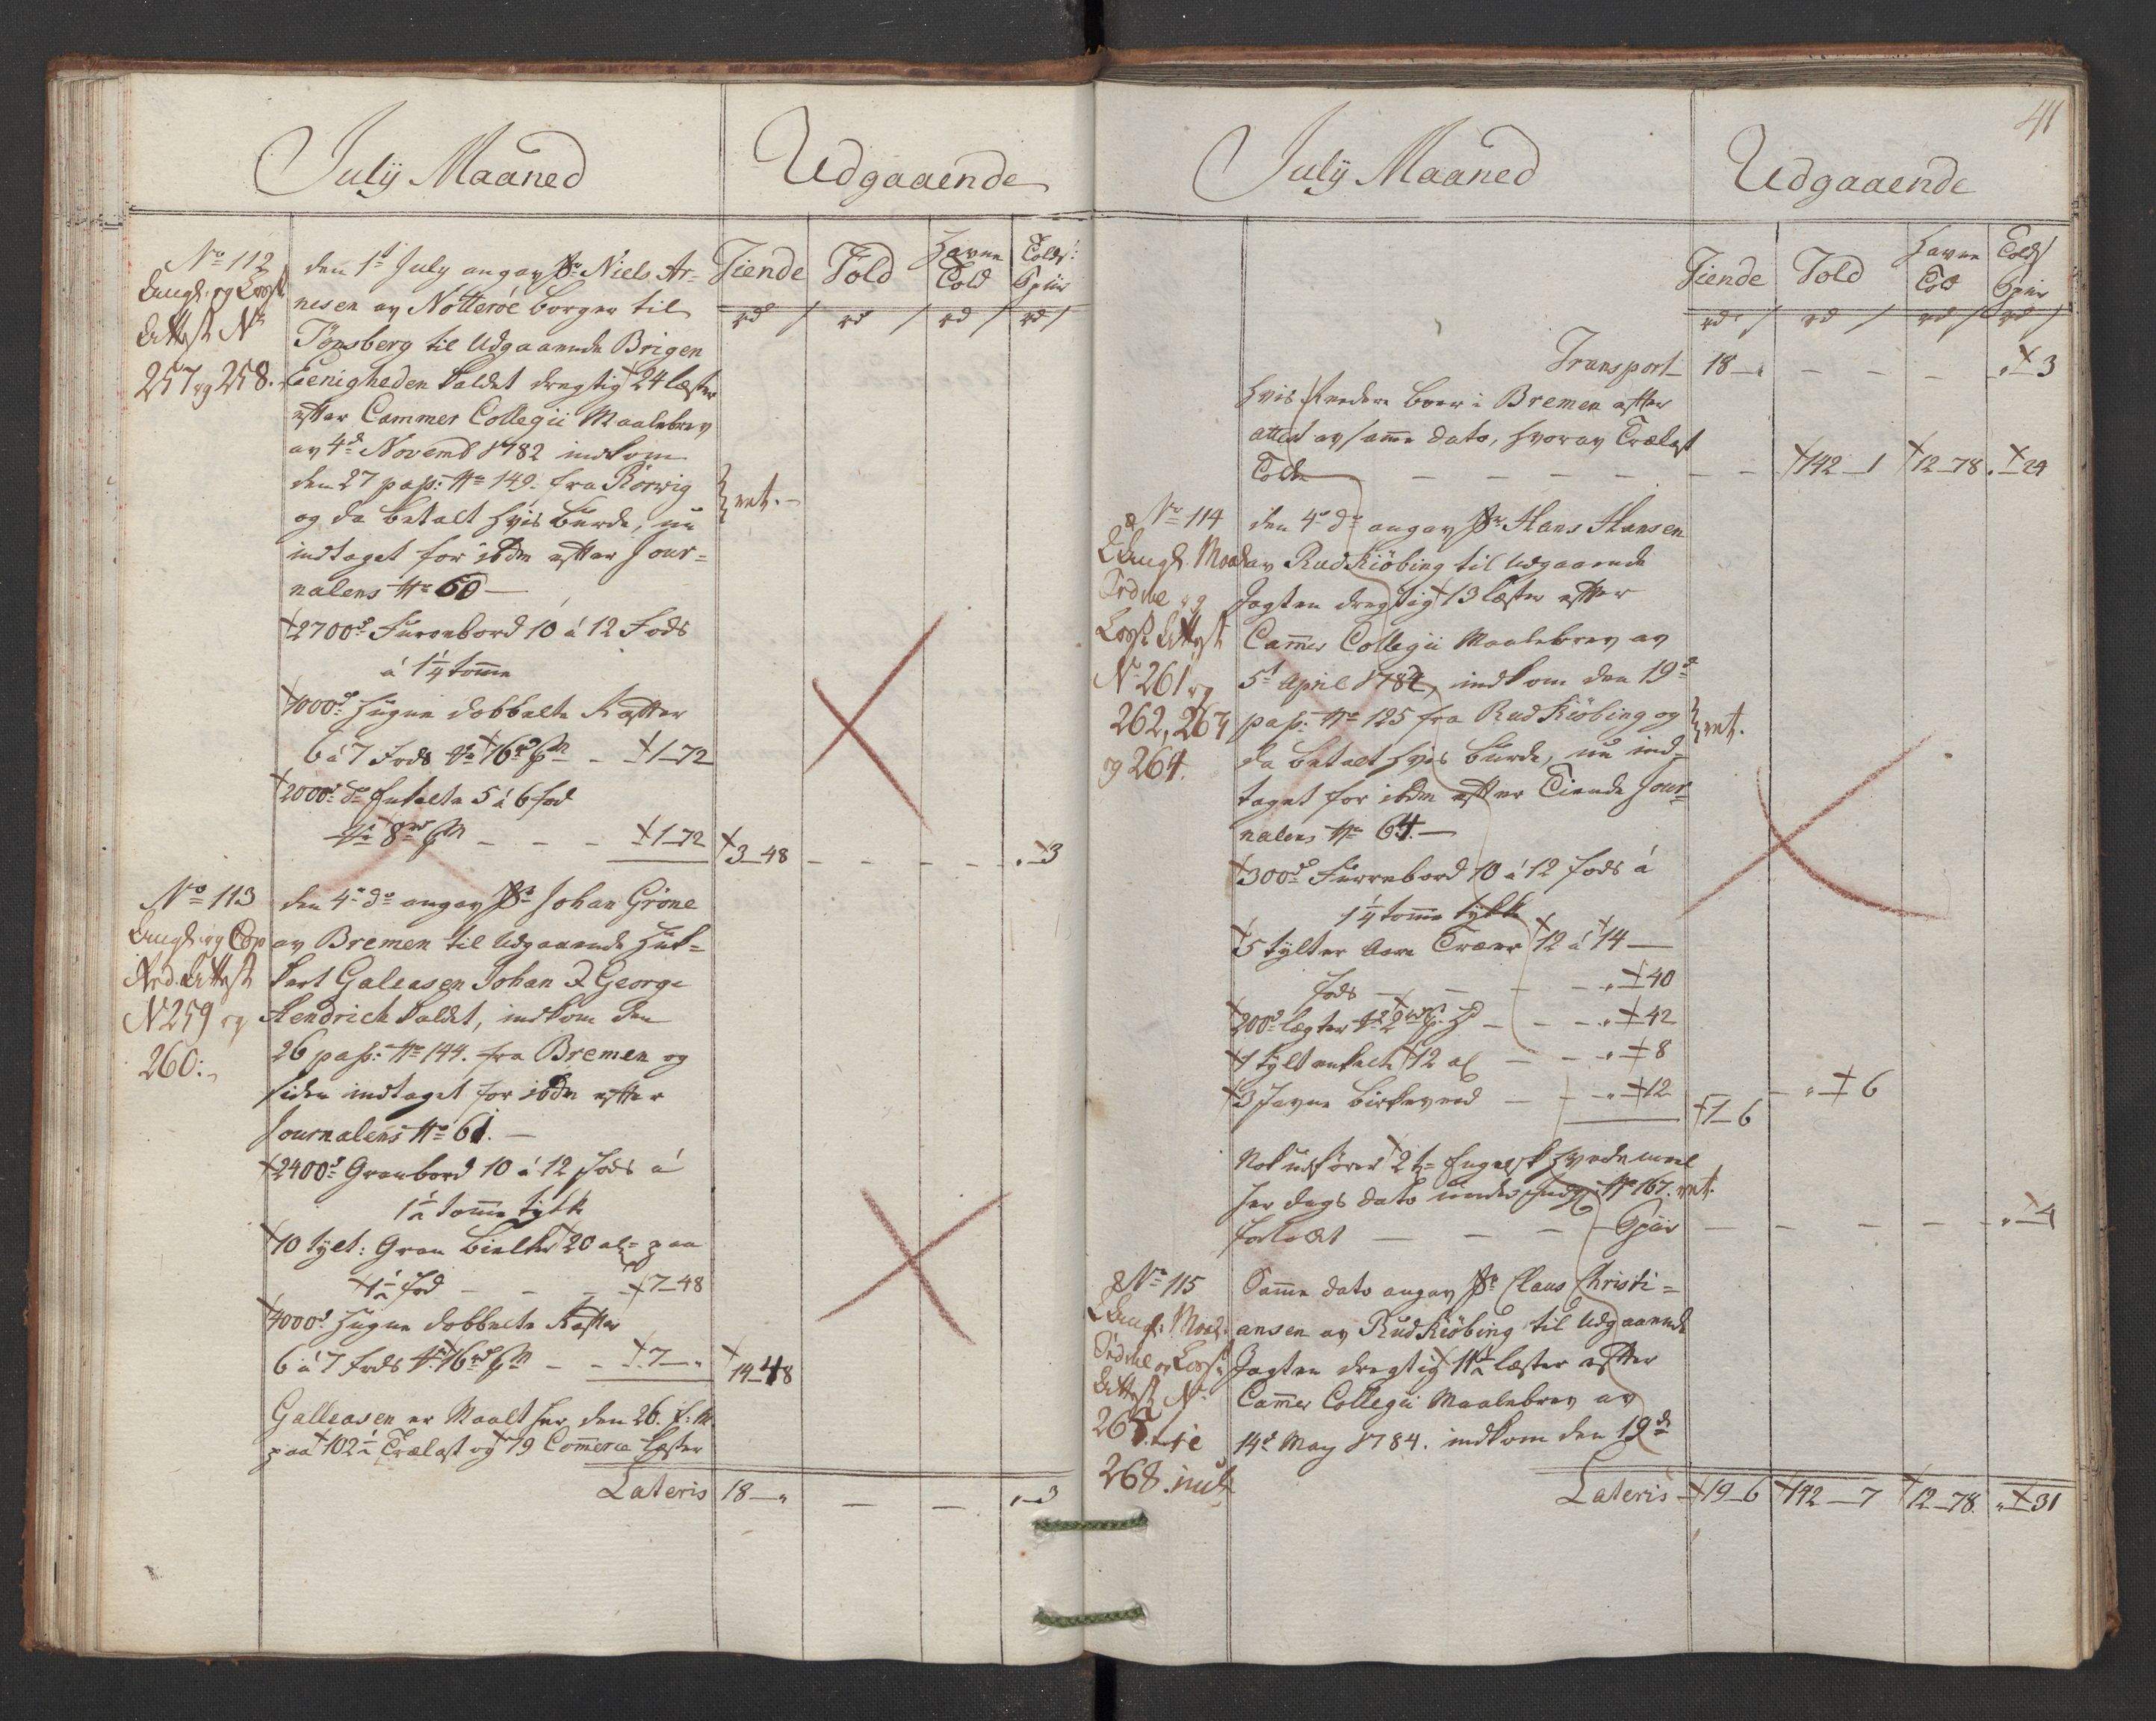 July Maaned
Udgaaende
Tiende Told Havne Told Told: Spiir
rd / rd / rd / rd /
No 112
Angl: og Losse
Attest No
257 og 258.
den 1d July angav Sr Niels Ar-
nesen av Nötteröe borger til
Tönsberg til Udgaaende Brigen
Eenigheden kaldet drægtig 24 læster
efter Cammer Collegii Maalebrev
av 4d Novemb 1782 indkom
den 27 pass: No 149. fra Rörvig
og da betalt hvis burde, nu
indtaget for ibdm efter Jour-
nalens No 60 —
2700d Furrebord 10 á 12 Fods
á 1 1/4 tomme
1000d Hugne dobbelte Kafter
6 á 7 Fods 16 — 1-72
2000d do Enkelte 5 á 6 fod
8 — — — 1-72 3-48 — — — — " 3
ret. —
No 113
Angl: og Cop
Attest
No 259 og
260:
den 4de do angav Sr Johan Gröne
av Bremen til Udgaaende Huk-
kert Galeasen Johan & Georg
Hendrich kaldet, indkom den
26 pass: No 144. fra Bremen og
siden indtaget for ibdm efter
Journalens No 61. —
2400d Granbord 10 á 12 Fods á
1 1/2 tomme tykk
10 tylt: Gran bielker 20 al: paa
1 1/2 fod — — — 7-48
4000d Hugne dobbelte Kafter
6 á 7 fods 16 — — 7 — " 14-48
Galleasen er Maalt her den 26. f: M
paa 102 1/2 Trælast og 79 Commerce læster
Lateris 18 — " — — " 3
41
July Maaned
Udgaaende
Tiende Told Havne Told Told Spiir
rd / rd / rd / rd /
Transport 18 — " — — — " 3
hvis Reedere boer i Bremen efter
attest av samme dato, hvorav Trælast
Told — — — — — — — 142-1 12-78. " 24
No 114
Angl. Maal
og
Losse Attest
No 261 og
262, 267
og 264.
den 4de do angav Sr Hans Hansen
av Rudkiöbing til udgaaende
Jagten drægtig 13 læster efter
Cammer Collegii Maalebrev av
5d April 1784, indkom den 19d
pass: No 125 fra Rudkiöbing og
da betalt hvis burde, nu ind-
taget for ibdm efter Tiende Jour-
nalens No 64. —
ret.
300d Furrebord 10 á 12 fods á
1 1/4 tomme tykk
5 tylter Aare Træer 12 á 14 —
fods — — — — " 40
200d lægter — — " 42
1 tylt enkelte 12 al — — " 8
3 favne birkeved — — " 12 1-6 — " 6
Nok udförer 2 t: Engelsk Hvedemeel
her dags dato No 167. ret.
fortoldet — — — Spiir — — — — — " 4
No 115
Angl: Maal:
og Losse
Attest No
265 tie
268. inct
Samme dato angav Sr Claus Christi-
ansen av Rudkiöbing til Udgaaende
Jagten drægtig 11 1/2 læster efter
Cammer Collegii Maalebrev av
14d May 1784. indkom den 19d
Lateris 19-6 142-7 12-78. " 31